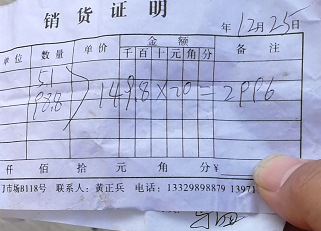 销货证明
年12月25日
单位 数量 单价 金额 备注
千百十元角分
51
98.8
149.8×20=2996
仟 佰 拾 元 角 分 ¥
市场B118号 联系人：黄正兵 电话：13329898879 13971